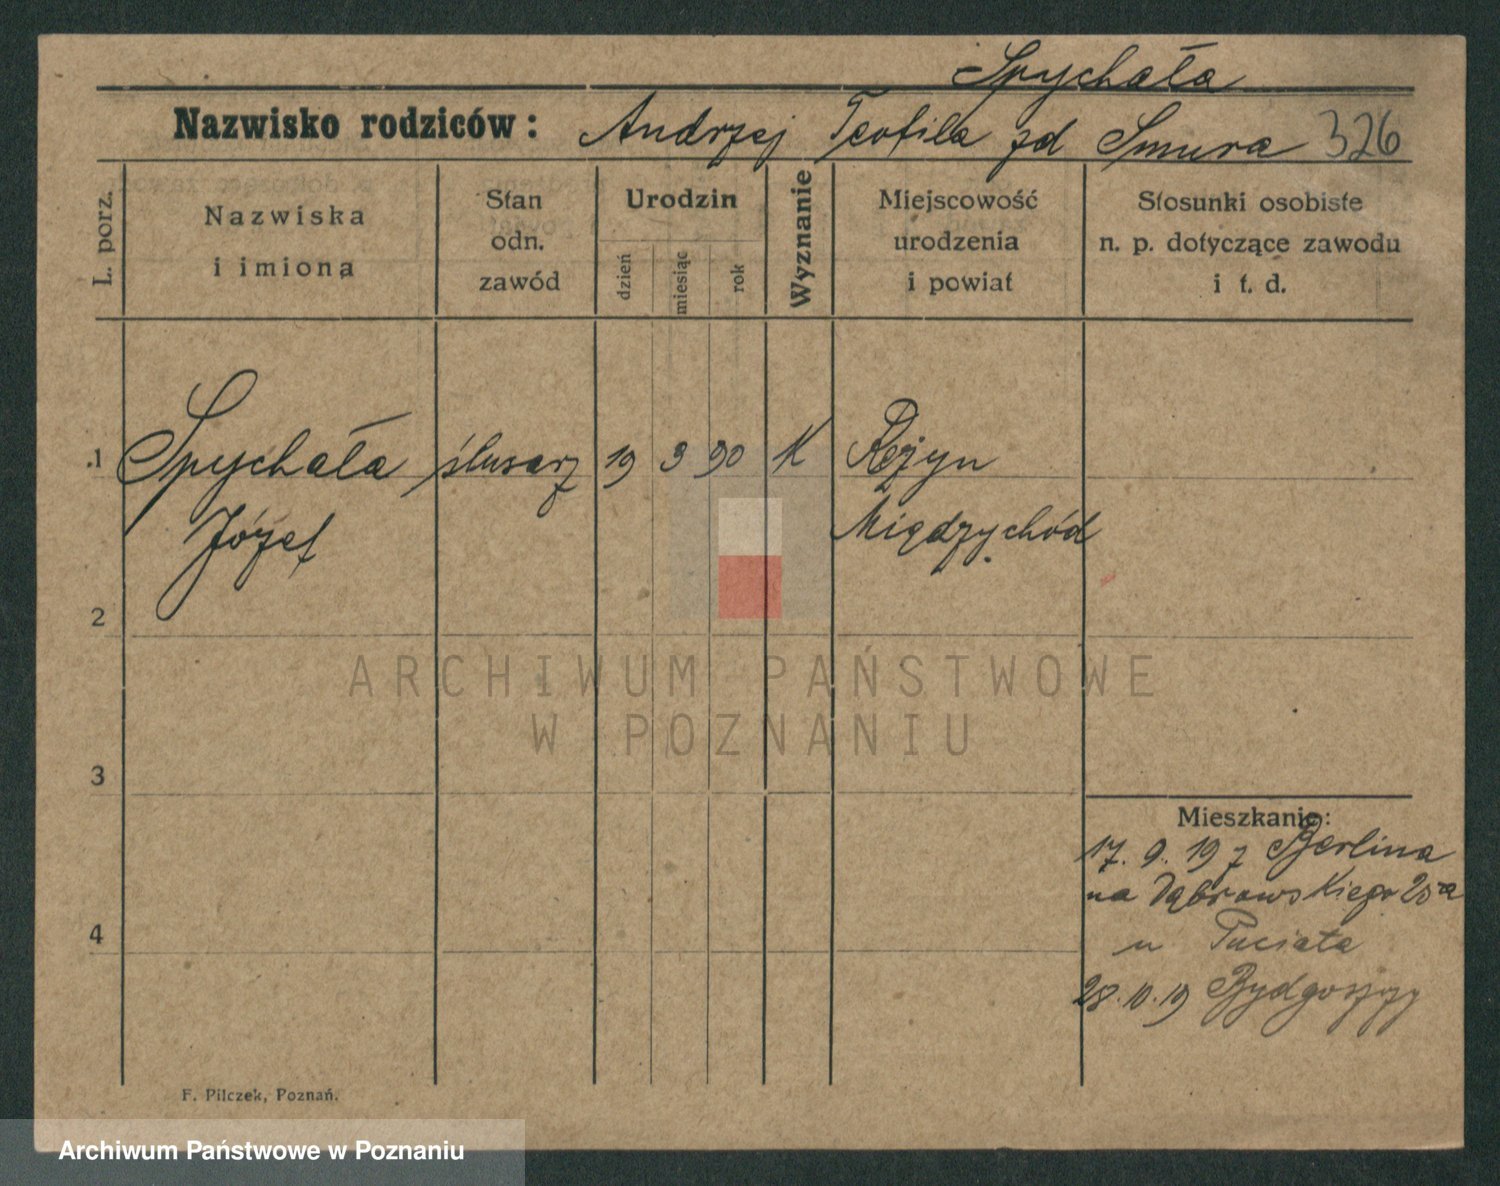 Spychała
Nazwisko rodziców: Andrzej Teofila zd Smura 326
L. porz.
Nazwiska
i imiona
Stan
odn.
zawód
Urodzin
dzień
miesiąc
rok
Wyznanie
Miejscowość
urodzenia
i powiat
Stosunki osobiste
n. p. dotyczące zawodu
i t. d.
1 Spychała ślusarz 19 3 90 K Rężyn
Józef Międzychód
2
ARCHIWUM PAŃSTWOWE
W POZNANIU
3
Mieszkanie:
17. 9. 19 z Berlina
na Dąbrowskiego 25a
4
u Puciata
28.10.19 Bydgoszczy
F. Pilczek, Poznań.
Archiwum Państwowe w Poznaniu